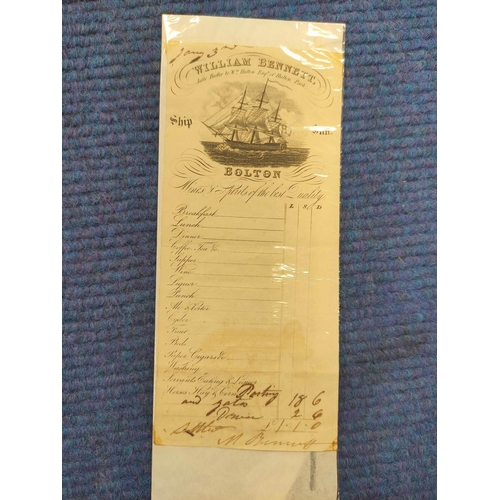 Jany 3rd
WILLIAM BENNETT,
Late Butler to Wm. Hulton Esqr. of Hulton Park
Ship Inn.
BOLTON
Wines & Spirits of the best Quality
£ S D
Breakfast
Lunch
Dinner
Coffee, Tea &c
Supper
Wine
Liquor
Punch
Ale & Porter
Cyder
Fruit
Beds
Paper, Cigars &c
Washing
Servants Eating &
Horses Hay & Corn Posting 18 6
and gates
Driver 2 6
Settled 1 . 1 . 0
W Bennett